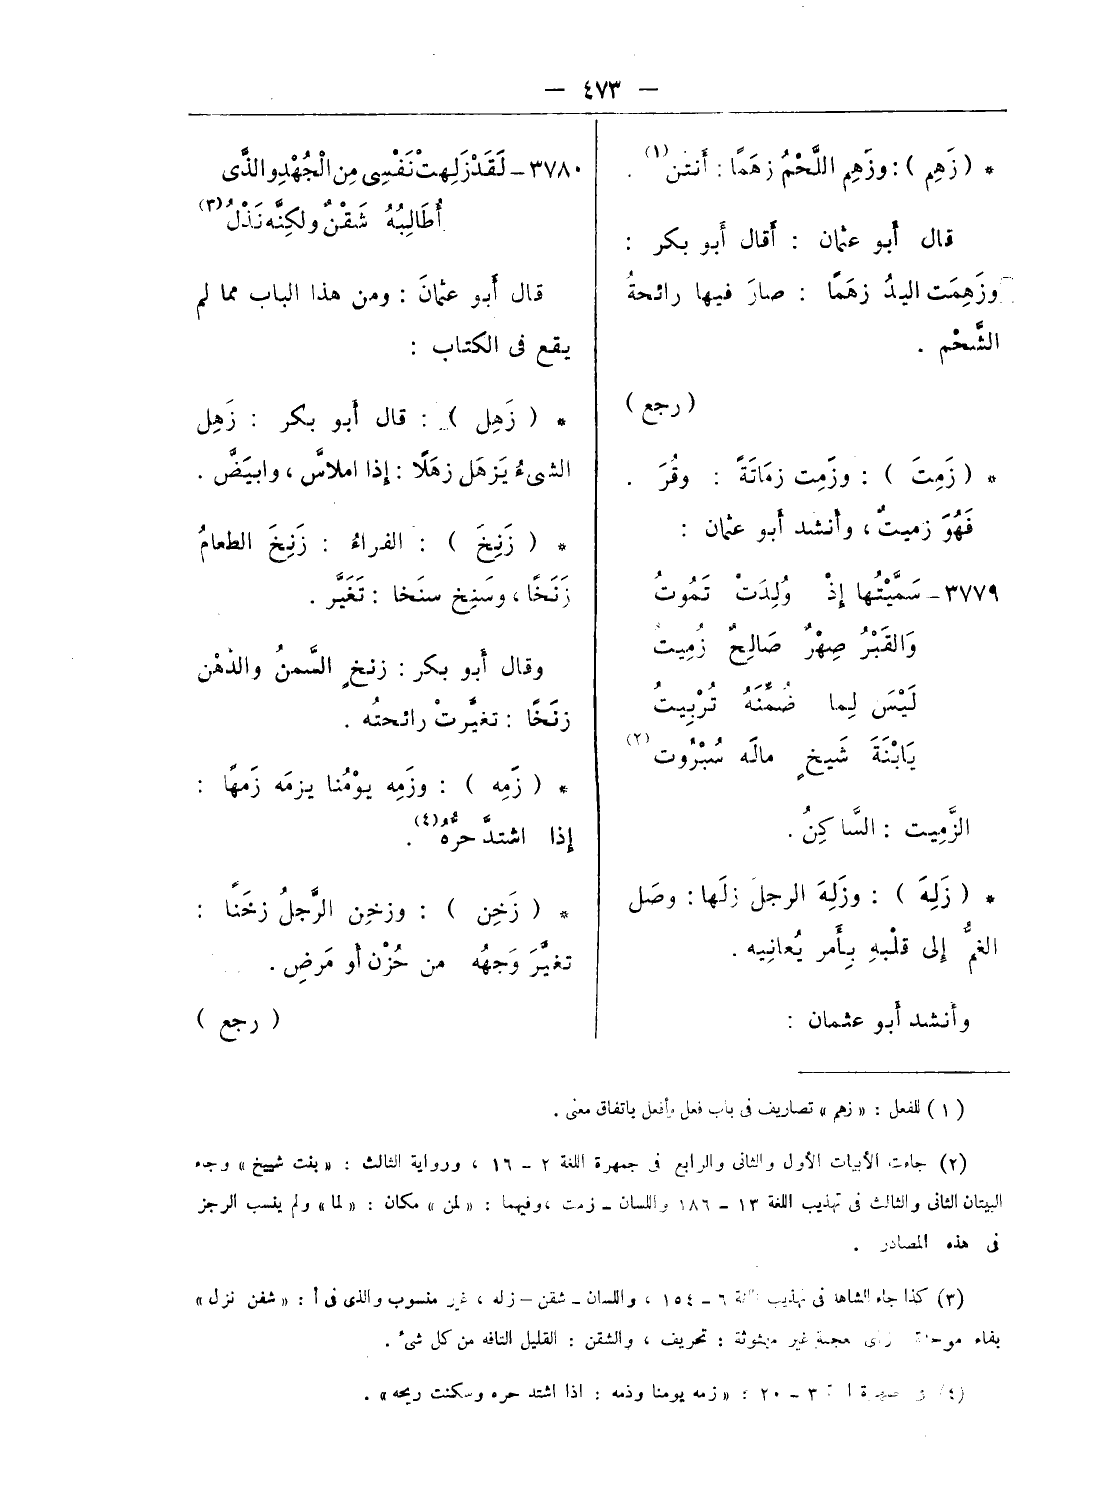 — ٤٧٣ —
* ( زَهِم ) : وزَهِم اللَّحْمُ زهَمًا : أَنتن(١) .
قال أَبو عثمان : أَقال أَبو بكر :
وزَهِمَت اليدُ زهَمًا : صارَ فيها رائحةُ
الشَّحْم .
( رجع )
* ( زَمِتَ ) : وزَمِت زمَاتَةً : وقُرَ .
فَهُوَ زميتٌ ، وأَنشد أَبو عثمان :
٣٧٧٩ – سَمَّيْتُها إِذْ وُلِدَتْ تَمُوتُ
وَالقَبْرُ صِهْرٌ صَالِحٌ زُمِيتُ
لَيْسَ لِما ضُمِّنَهُ تُرْبِيتُ
يَابْنَةَ شَيخٍ مالَه سُبْرُوت(٢)
الزَّمِيت : السَّاكِنُ .
* ( زَلِهَ ) : وزَلِهَ الرجل زلَها : وصَل
الغمُّ إِلى قلْبهِ بِأَمر يُعانِيه .
وأَنشد أَبو عثمان :
٣٧٨٠ – لَقَدْ زَلِهتْ نَفْسِى مِن الْجُهْدِ والذَّى
أُطَالِبُهُ شَقْنٌ ولكِنَّه نَذْلُ(٣)
قال أَبو عثمانَ : ومن هذا الباب مما لم
يقع فى الكتاب :
* ( زَهِل ) : قال أَبو بكر : زَهِل
الشىءُ يَزهَل زهَلًا : إِذا املاسَّ ، وابيَضَّ .
* ( زَنِخَ ) : الفراءُ : زَنِخَ الطعامُ
زَنَخًا ، وسَنِخ سنَخا : تَغَيَّر .
وقال أَبو بكر : زنخٍ السَّمنُ والدُهْن
زنَخًا : تغيَّرتْ رائحتُه .
* ( زَمِه ) : وزَمِه يوْمُنا يزمَه زَمهًا :
إِذا اشتدَّ حرُّهُ(٤) .
* ( زَخِن ) : وزخِن الرَّجلُ زخَنًا :
تغيَّرَ وَجهُه من حُزْن أَو مَرضِ .
( رجع )
(١) للفعل : « زهم » تصاريف فى باب فعل وأفعل باتفاق معنى .
(٢) جاءت الأبيات الأول والثانى والرابع فى جمهرة اللغة ٢ – ١٦ ، ورواية الثالث : « بنت شييخ » وجاء
البيتان الثانى والثالث فى تهذيب اللغة ١٣ – ١٨٦ واللسان – زمت ، وفيهما : « لمن » مكان : « لما » ولم ينسب الرجز
فى هذه المصادر .
(٣) كذا جاء الشاهد فى تهذيب اللغة ٦ – ١٥٤ ، واللسان – شقن – زله ، غير منسوب والذى فى أ : « شفن نزل »
بفاء موحدة وزاى معجمة غير مبثوثة : تحريف ، والشقن : القليل التافه من كل شىء .
(٤) ٣ – ٢٠ : « زمه يومنا وذمه : اذا اشتد حره وسكنت ريحه » .